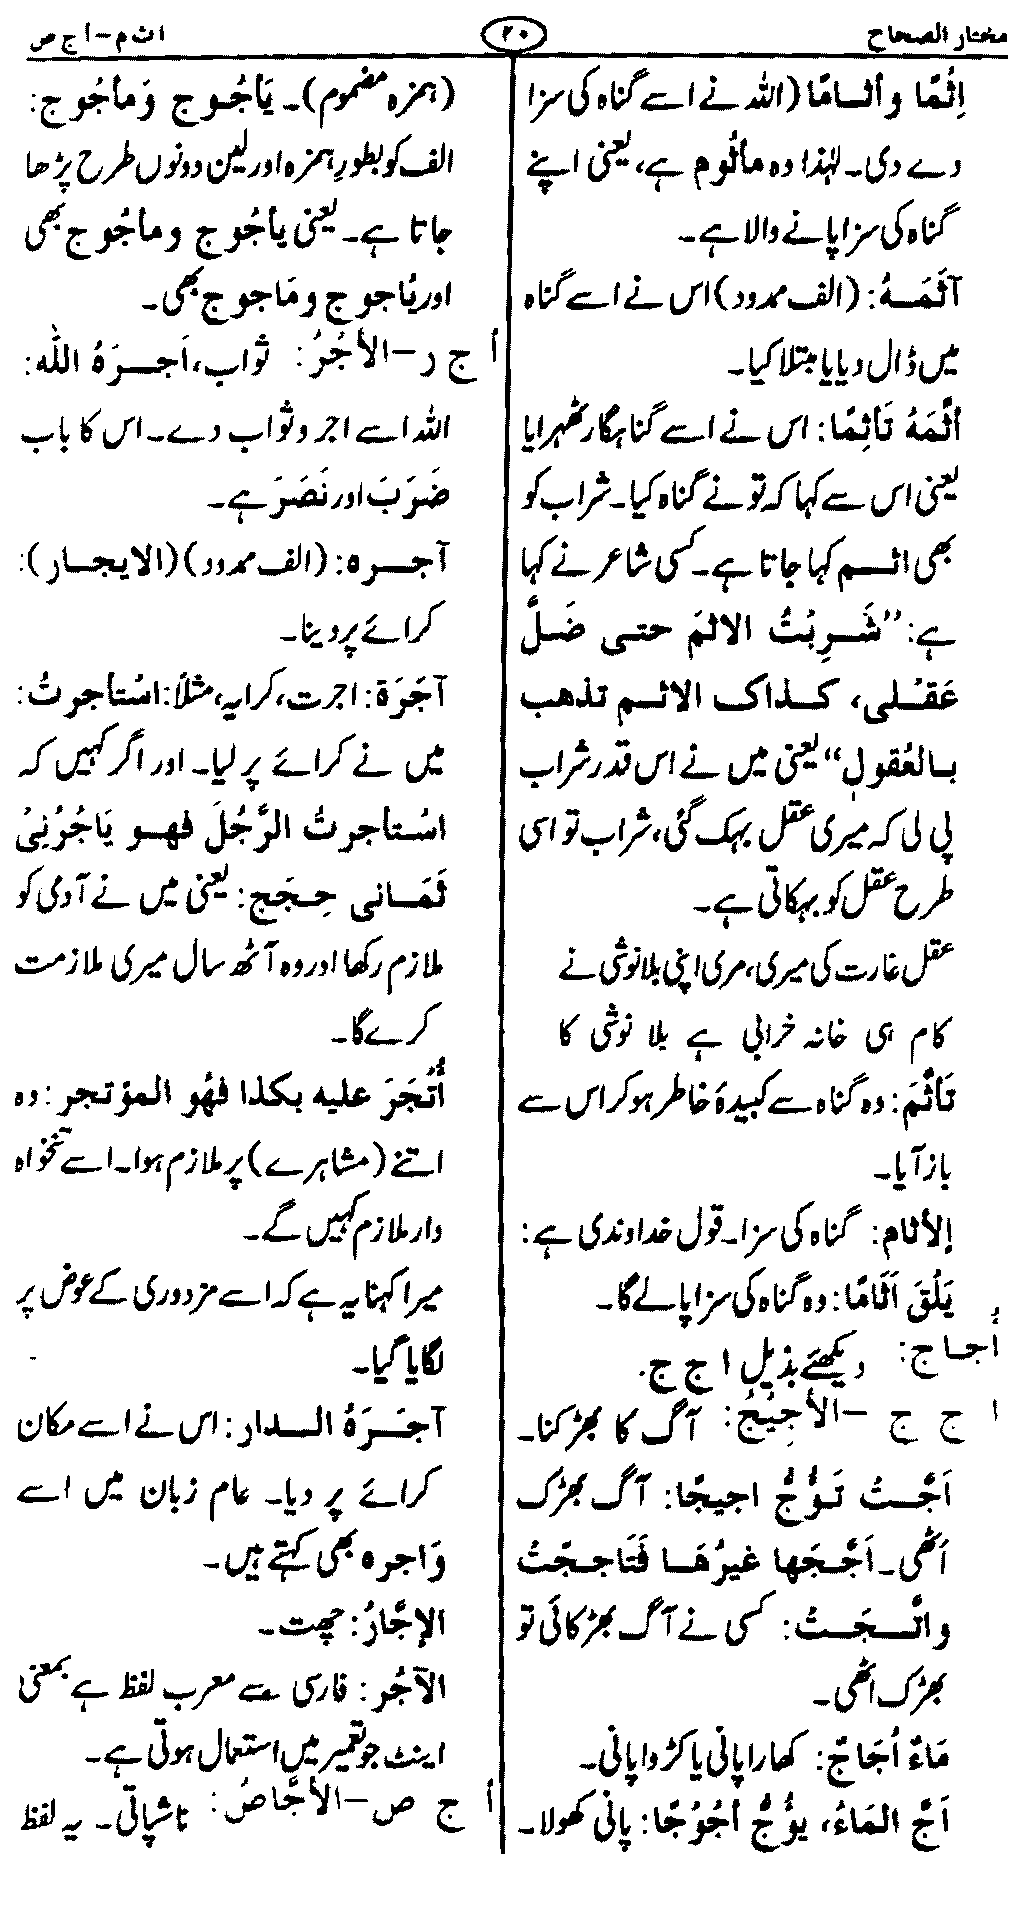 مختار الصحاح
۲۰
ا ث م – أ ج ص
إِثْمًا وأثـامًا (اللہ نے اسے گناہ کی سزا
دے دی۔ لہٰذا وہ مأثُوم ہے، یعنی اپنے
گناہ کی سزا پانے والا ہے۔
آثَمَـهُ: (الف ممدود) اس نے اسے گناہ
میں ڈال دیا یا مبتلا کیا۔
أثَّمَهُ تَأثِمًا: اس نے اسے گناہگار ٹھہرایا
یعنی اس سے کہا کہ تو نے گناہ کیا۔ شراب کو
بھی اثــم کہا جاتا ہے۔ کسی شاعر نے کہا
ہے: ”شَــرِبْتُ الاثمَ حتـى ضَـلَّ
عَقْـلى، كـذاك الاثـم تذهب
بـالعُقولِ“ یعنی میں نے اس قدر شراب
پی لی کہ میری عقل بہک گئی، شراب تو اسی
طرح عقل کو بہکاتی ہے۔
عقل غارت کی میری، مری اپنی بلانوشی نے
کام ہی خانہ خرابی ہے بلا نوشی کا
تَأثَّمَ: وہ گناہ سے کبیدہ خاطر ہو کر اس سے
باز آیا۔
إلأثام: گناہ کی سزا۔ قول خداوندی ہے:
يَلْقَ اَثَامًا: وہ گناہ کی سزا پا لے گا۔
أُجـاج: دیکھئے بذیل ا ج ج.
ا ج ج – الأجِيْجُ: آگ کا بھڑکنا۔
اَجَّـتْ تَـؤُجُّ اجيجًا: آگ بھڑک
اُٹھی۔ اَجَّـجَها غيرُهَـا فَتَاجـجّتْ
واتَّــجَـتْ: کسی نے آگ بھڑکائی تو
بھڑک اٹھی۔
مَاءٌ اُجَاجٌ: کھارا پانی یا کڑوا پانی۔
اَجَّ المَاءُ، يؤُجُّ أجُوْجًا: پانی کھولا۔
(ہمزہ مضموم)۔ يَأجُـوج وَمأجُوج:
الف کو بطورِ ہمزہ اور لین دونوں طرح پڑھا
جاتا ہے۔ یعنی يأجُوج ومأجُوج بھی
اور يَاجوج ومَاجوج بھی۔
أ ج ر – الأجْرُ: ثواب، اَجــرَهُ اللّٰه:
اللہ اسے اجر و ثواب دے۔ اس کا باب
ضَرَبَ اور نَصَرَ ہے۔
آجــره: (الف ممدود) (الايجـار):
کرائے پر دینا۔
آجُرَة: اجرت، کرایہ، مثلاً: اسْتأجرتُ:
میں نے کرائے پر لیا۔ اور اگر کہیں کہ
اسْـتأجرتُ الرَّجُلَ فهـو يَاجُرُنِىْ
ثَمَـانى حِـجَج: یعنی میں نے آدمی کو
ملازم رکھا اور وہ آٹھ سال میری ملازمت
کرے گا۔
أُتُجَرَ عليه بكذا فهُو المؤتجر: وہ
اتنے (مشاہرے) پر ملازم ہوا۔ اسے تنخواہ
دار ملازم کہیں گے۔
میرا کہنا یہ ہے کہ اسے مزدوری کے عوض پر
لگایا گیا۔
آجَـرَهُ الــدار: اس نے اسے مکان
کرائے پر دیا۔ عام زبان میں اسے
وَاجره بھی کہتے ہیں۔
الإجَّارُ: چھت۔
الآجُر: فارسی سے معرب لفظ ہے بمعنی
اینٹ جو تعمیر میں استعمال ہوتی ہے۔
أ ج ص – الأجَّاصُ: ناشپاتی۔ یہ لفظ